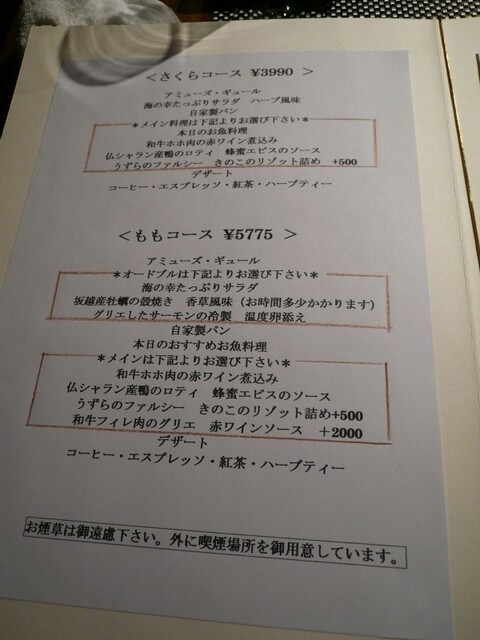 ＜さくらコース ¥3990 ＞
アミューズ・ギュール
海の幸たっぷりサラダ　ハーブ風味
自家製パン
＊メイン料理は下記よりお選び下さい＊
本日のお魚料理
和牛ホホ肉の赤ワイン煮込み
仏シャラン産鴨のロティ　蜂蜜エピスのソース
うずらのファルシー　きのこのリゾット詰め　+500
デザート
コーヒー・エスプレッソ・紅茶・ハーブティー
＜ももコース ¥5775 ＞
アミューズ・ギュール
＊オードブルは下記よりお選び下さい＊
海の幸たっぷりサラダ
坂越産牡蠣の殻焼き　香草風味（お時間多少かかります）
グリエしたサーモンの冷製　温度卵添え
自家製パン
本日のおすすめお魚料理
＊メインは下記よりお選び下さい＊
和牛ホホ肉の赤ワイン煮込み
仏シャラン産鴨のロティ　蜂蜜エピスのソース
うずらのファルシー　きのこのリゾット詰め+500
和牛フィレ肉のグリエ　赤ワインソース　＋2000
デザート
コーヒー・エスプレッソ・紅茶・ハーブティー
お煙草は御遠慮下さい。外に喫煙場所を御用意しています。